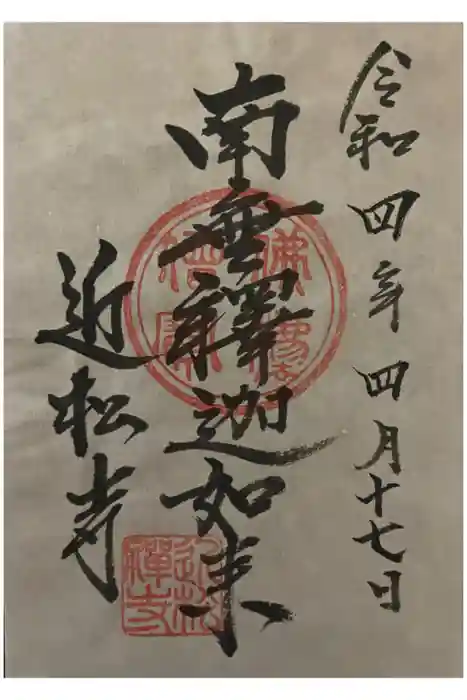 令和四年四月十七日
南無釋迦如来
近松寺
佛法僧寶
近松禅寺